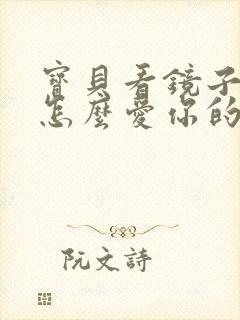 寶貝看鏡子
怎麼愛你的
阮文詩